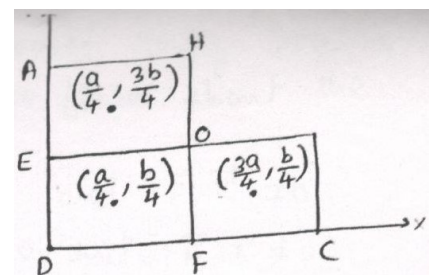 A H
(a/4, 3b/4)
E O
(a/4, b/4) (3a/4, b/4)
x
D F C